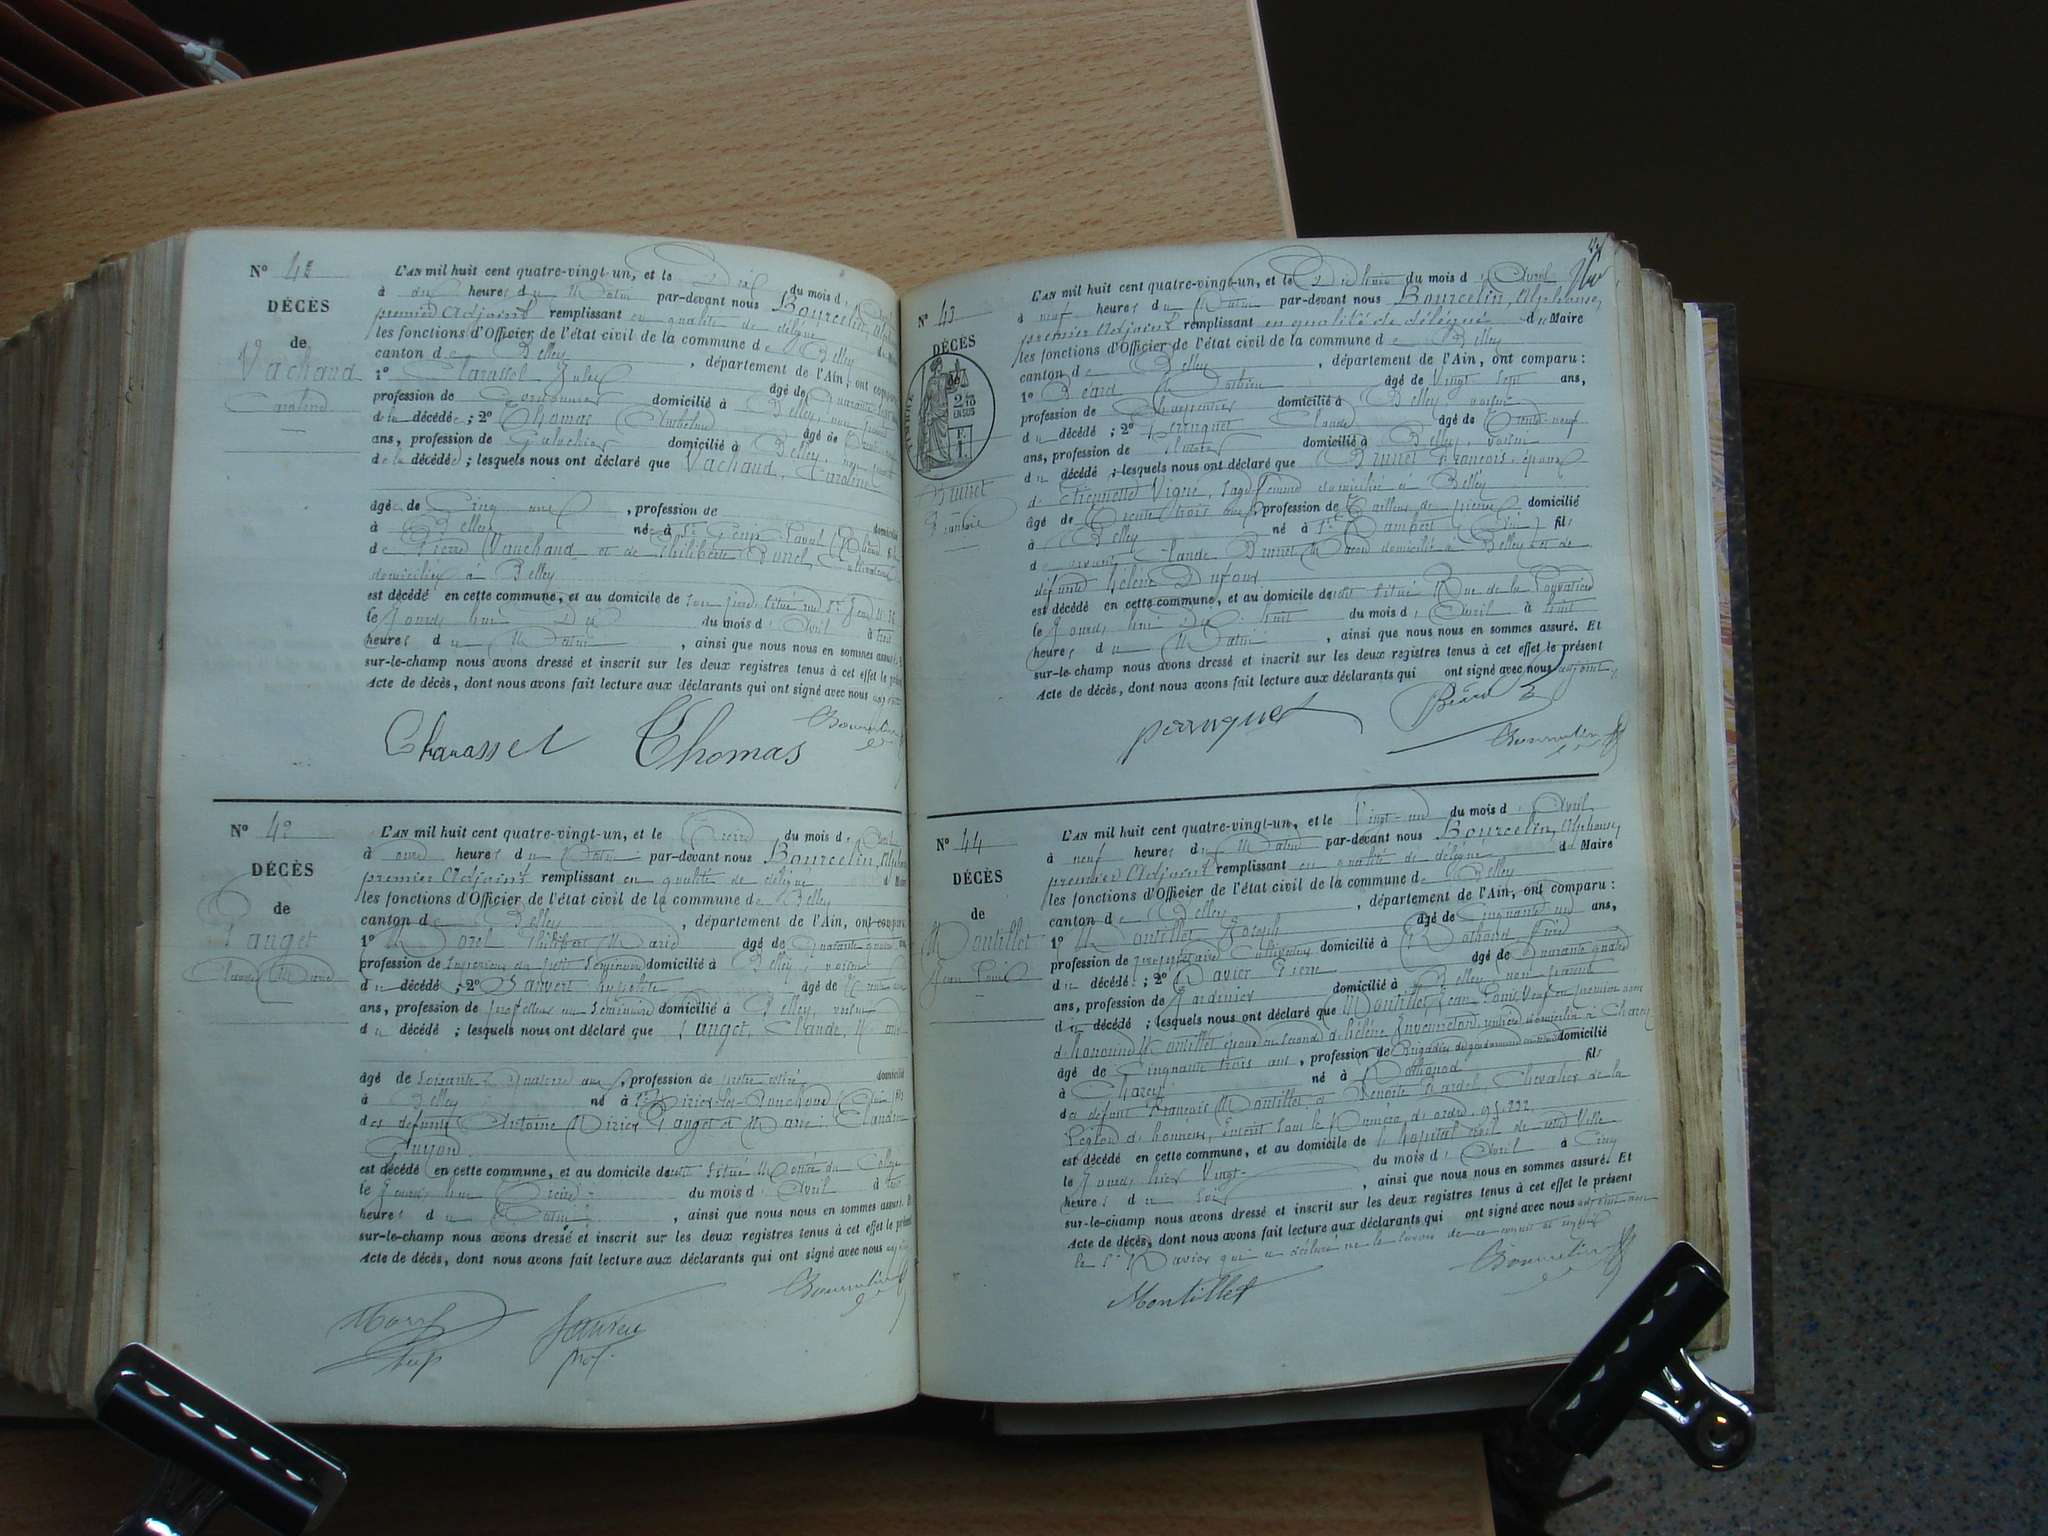 N° 41
DÉCÈS
de
Vachaud
Caroline
L'AN mil huit cent quatre-vingt-un, et le Dix du mois d'
à heures du Matin par-devant nous Bourcelin, Alph
premier Adjoint remplissant en qualité de délégué du Maire
les fonctions d'Officier de l'état civil de la commune de Belley
canton de Belley, département de l'Ain, ont comparu
1° Jules âgé de Quarante
profession de Cordonnier domicilié à Belley, non parent
de la décédée; 2° Thomas Anthelme âgé de
ans, profession de domicilié à Belley, non parent
de la décédée; lesquels nous ont déclaré que Vachaud, Caroline
âgée de Cinq ans, profession de domicilié
à Belley née à St Genis Laval (Rhône) fil
de Pierre Vachaud et de Philiberte
domiciliés à Belley
est décédé en cette commune, et au domicile de son père, situé rue St Jean
le Jourd'hui Dix du mois d'Avril à
heures du Matin, ainsi que nous nous en sommes assuré
sur-le-champ nous avons dressé et inscrit sur les deux registres tenus à cet effet le présent
Acte de décès, dont nous avons fait lecture aux déclarants qui ont signé avec nous adjoint
Charasset Thomas Bourcelin
N° 42
DÉCÈS
de
Pauget
Claude Marie
L'AN mil huit cent quatre-vingt-un, et le Treize du mois d'Avril
à onze heures du Matin par-devant nous Bourcelin, Alphon
premier Adjoint remplissant en qualité de délégué du Maire
les fonctions d'Officier de l'état civil de la commune de Belley
canton de Belley, département de l'Ain, ont comparu
1° Morel Philibert Marie âgé de Quarante
profession de Supérieur du petit Séminaire domicilié à Belley, voisin
du décédé; 2° Hippolyte âgé de Trente
ans, profession de professeur au Séminaire domicilié à Belley, voisin
du décédé; lesquels nous ont déclaré que Pauget, Claude, Marie
âgé de Soixante Quatorze ans, profession de prêtre domicilié
à Belley né à fils
des défunts Antoine Pauget et Marie Claudine
est décédé en cette commune, et au domicile de situé Montée du Collège
le Jourd'hui Treize du mois d'Avril à
heures du Matin, ainsi que nous nous en sommes assuré.
sur-le-champ nous avons dressé et inscrit sur les deux registres tenus à cet effet le présent
Acte de décès, dont nous avons fait lecture aux déclarants qui ont signé avec nous adjoint
Morel Bourcelin
sup prof.
N° 43
DÉCÈS
de
TIMBRE
2 10
EN SUS
Brunet
François
L'AN mil huit cent quatre-vingt-un, et le Dix huit du mois d'Avril
à neuf heures du Matin par-devant nous Bourcelin, Alphonse,
premier Adjoint remplissant en qualité de délégué du Maire
les fonctions d'Officier de l'état civil de la commune de Belley
canton de Belley, département de l'Ain, ont comparu:
1° Béard âgé de Vingt sept ans,
profession de Charpentier domicilié à Belley, voisin
du décédé; 2° Perruquet Claude âgé de Trente-neuf
ans, profession de domicilié à Belley, voisin
du décédé; lesquels nous ont déclaré que Brunet François, époux
de Etiennette Vigne, Sage femme domiciliée à Belley
âgé de Trente trois ans, profession de Tailleur de pierres, domicilié
à Belley né à St Rambert (Ain) fils
de vivant Claude Brunet Maçon domicilié à Belley et de
défunte Hélène Dufour
est décédé en cette commune, et au domicile de situé Rue de la
le Jourd'hui Dix huit du mois d'Avril à huit
heures du Matin, ainsi que nous nous en sommes assuré. Et
sur-le-champ nous avons dressé et inscrit sur les deux registres tenus à cet effet le présent
Acte de décès, dont nous avons fait lecture aux déclarants qui ont signé avec nous adjoint,
perruquet Béard Bourcelin
N° 44
DÉCÈS
de
Montillet
Jean Louis
L'AN mil huit cent quatre-vingt-un, et le Vingt-un du mois d'Avril
à neuf heures du Matin par-devant nous Bourcelin, Alphonse,
premier Adjoint remplissant en qualité de délégué du Maire
les fonctions d'Officier de l'état civil de la commune de Belley
canton de Belley, département de l'Ain, ont comparu:
1° Montillet Joseph âgé de Cinquante un ans,
profession de propriétaire Cultivateur domicilié à Rothonod frère
du décédé; 2° Davier Pierre âgé de Quarante quatre
ans, profession de Jardinier domicilié à Belley non parent
du décédé; lesquels nous ont déclaré que Montillet, Jean Louis, Veuf en premier
d'honorine Montillet époux en second d'hélène domicilié à
âgé de Cinquante trois ans, profession de Brigadier de gendarmerie en retraite domicilié
à né à Rothonod fils
des défunts François Montillet et Benoîte Chevalier de la
Légion d'honneur, inscrit sous le Numéro d'ordre
est décédé en cette commune, et au domicile de l'hôpital civil de cette Ville
le Jourd'hier Vingt du mois d'Avril à Cinq
heures du Soir, ainsi que nous nous en sommes assuré. Et
sur-le-champ nous avons dressé et inscrit sur les deux registres tenus à cet effet le présent
Acte de décès, dont nous avons fait lecture aux déclarants qui ont signé avec nous adjoint non
le Sr Davier qui a déclaré ne le savoir de ce enquis et
Montillet Bourcelin